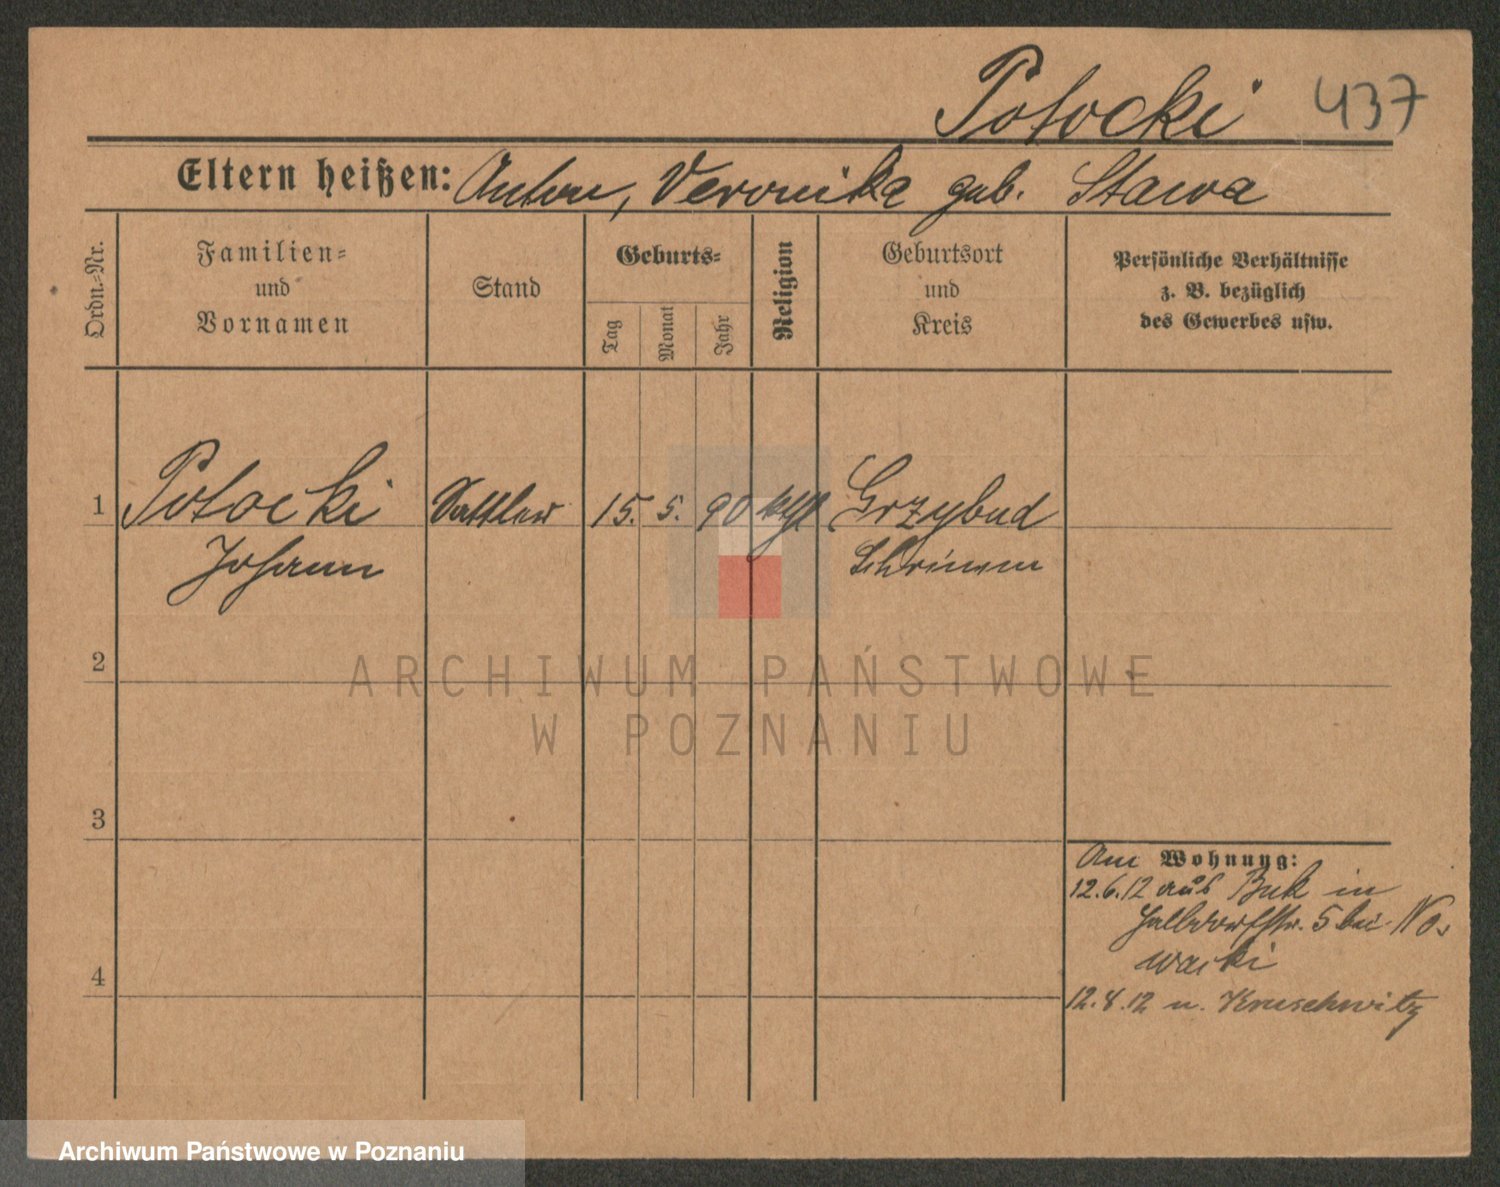 Potocki 437
Eltern heißen: Anton, Veronika geb. Stawa
Ordn.-Nr.
Familien-
und
Vornamen
Stand
Geburts-
Tag
Monat
Jahr
Religion
Geburtsort
und
Kreis
Persönliche Verhältnisse
z. B. bezüglich
des Gewerbes usw.
1 Potocki Sattler 15. 5. 90 kthl Grzybud
Johann Schrimm
2
3
4
Am Wohnung:
12.6.12 aus Buk in
Halbdorfstr. 5 bei No-
wacki
12.8.12 n. Kruschwitz
ARCHIWUM PAŃSTWOWE
W POZNANIU
Archiwum Państwowe w Poznaniu